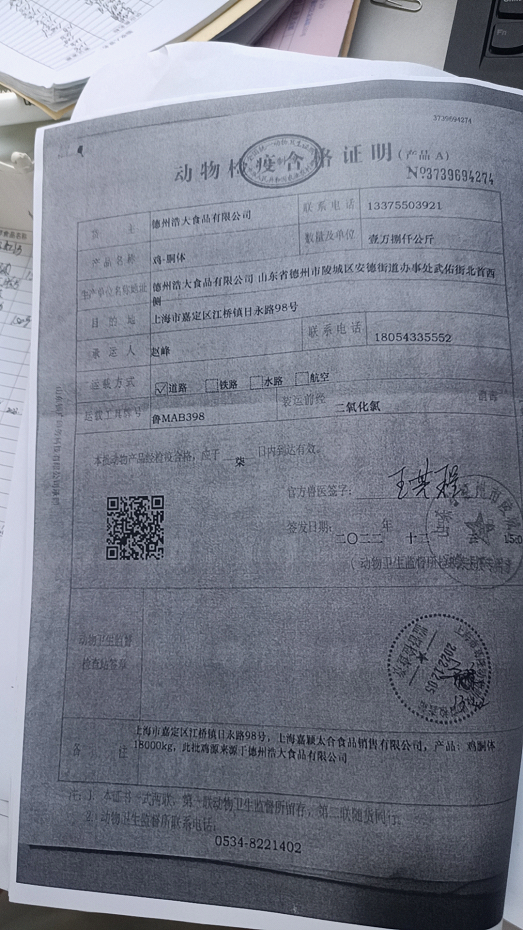 3739694274
动物检疫合格证明(产品 A)
№3739694274
货主 德州浩大食品有限公司 联系电话 13375503921
产品名称 鸡-胴体 数量及单位 壹万捌仟公斤
生产单位名称地址 德州浩大食品有限公司 山东省德州市陵城区安德街道办事处武佑街北首西
侧
目的地 上海市嘉定区江桥镇日永路98号
承运人 赵峰 联系电话 18054335552
运载方式 ☑道路 □铁路 □水路 □航空
运载工具牌号 鲁MAB398 装运前经 二氧化氯 消毒
本批动物产品经检疫合格,应于 柒 日内到达有效。
官方兽医签字:
签发日期: 二〇二二 年 十二
15:0
(动物卫生监督所
动物卫生监督
检查站签章
2022.12.05
备注 上海市嘉定区江桥镇日永路98号,上海嘉颖太合食品销售有限公司,产品:鸡胴体
18000kg,此批鸡源来源于德州浩大食品有限公司
注:1、本证书一式两联,第一联动物卫生监督所留存,第二联随货同行。
2、动物卫生监督所联系电话:
0534-8221402